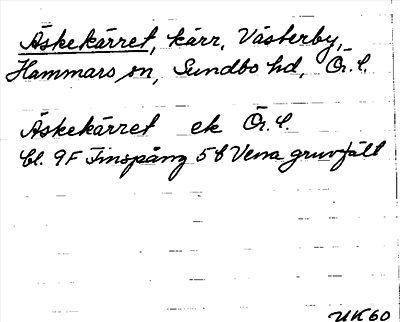 Äskekärret, kärr, Västerby,
Hammars sn, Sundbo hd, Ör. l.
Äskekärret ek Ör. l.
bl. 9F Finspång 5 b Vena gruvfält
UK60